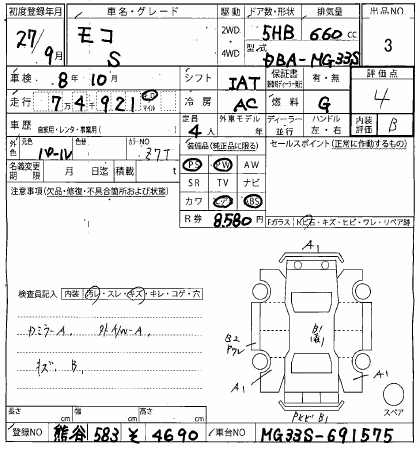 初度登録年月 車名・グレード 駆動 ドア数・形状 排気量 出品NO
27/9月 モコ S 2WD. 4WD 5HB 660cc 3
型式 DBA-MG33S
車検 8年10月 シフト IAT 保証書 有・無 評価点
走行 7万4千921 キロ マイル 冷房 AC 燃料 G 4
車歴 自家用・レンタ・事業用( ) 定員 4人 外車モデル 年 ディーラー 並行 ハンドル 左・右 内装評価 B
外色 元色 パール 色替 カラーNO Z7T 装備品(純正品に限る) セールスポイント(正常に作動するもの)
名義変更期限 月 日迄 積載 PS PW AW
注意事項(欠品・修復・不具合箇所および状態) SR TV ナビ
カワ エアB ABS
R券 8.580円 Fガラス トビ石・キズ・ヒビ・ワレ・リペア跡
A1
検査員記入 内装 汚レ・スレ・キズ・キレ・コゲ・穴
キズ B1
B2
A1 A1
B1 スペア
長さ cm 幅 cm 高さ cm
登録NO 熊谷 583 そ 4690 車台NO MG33S-691575